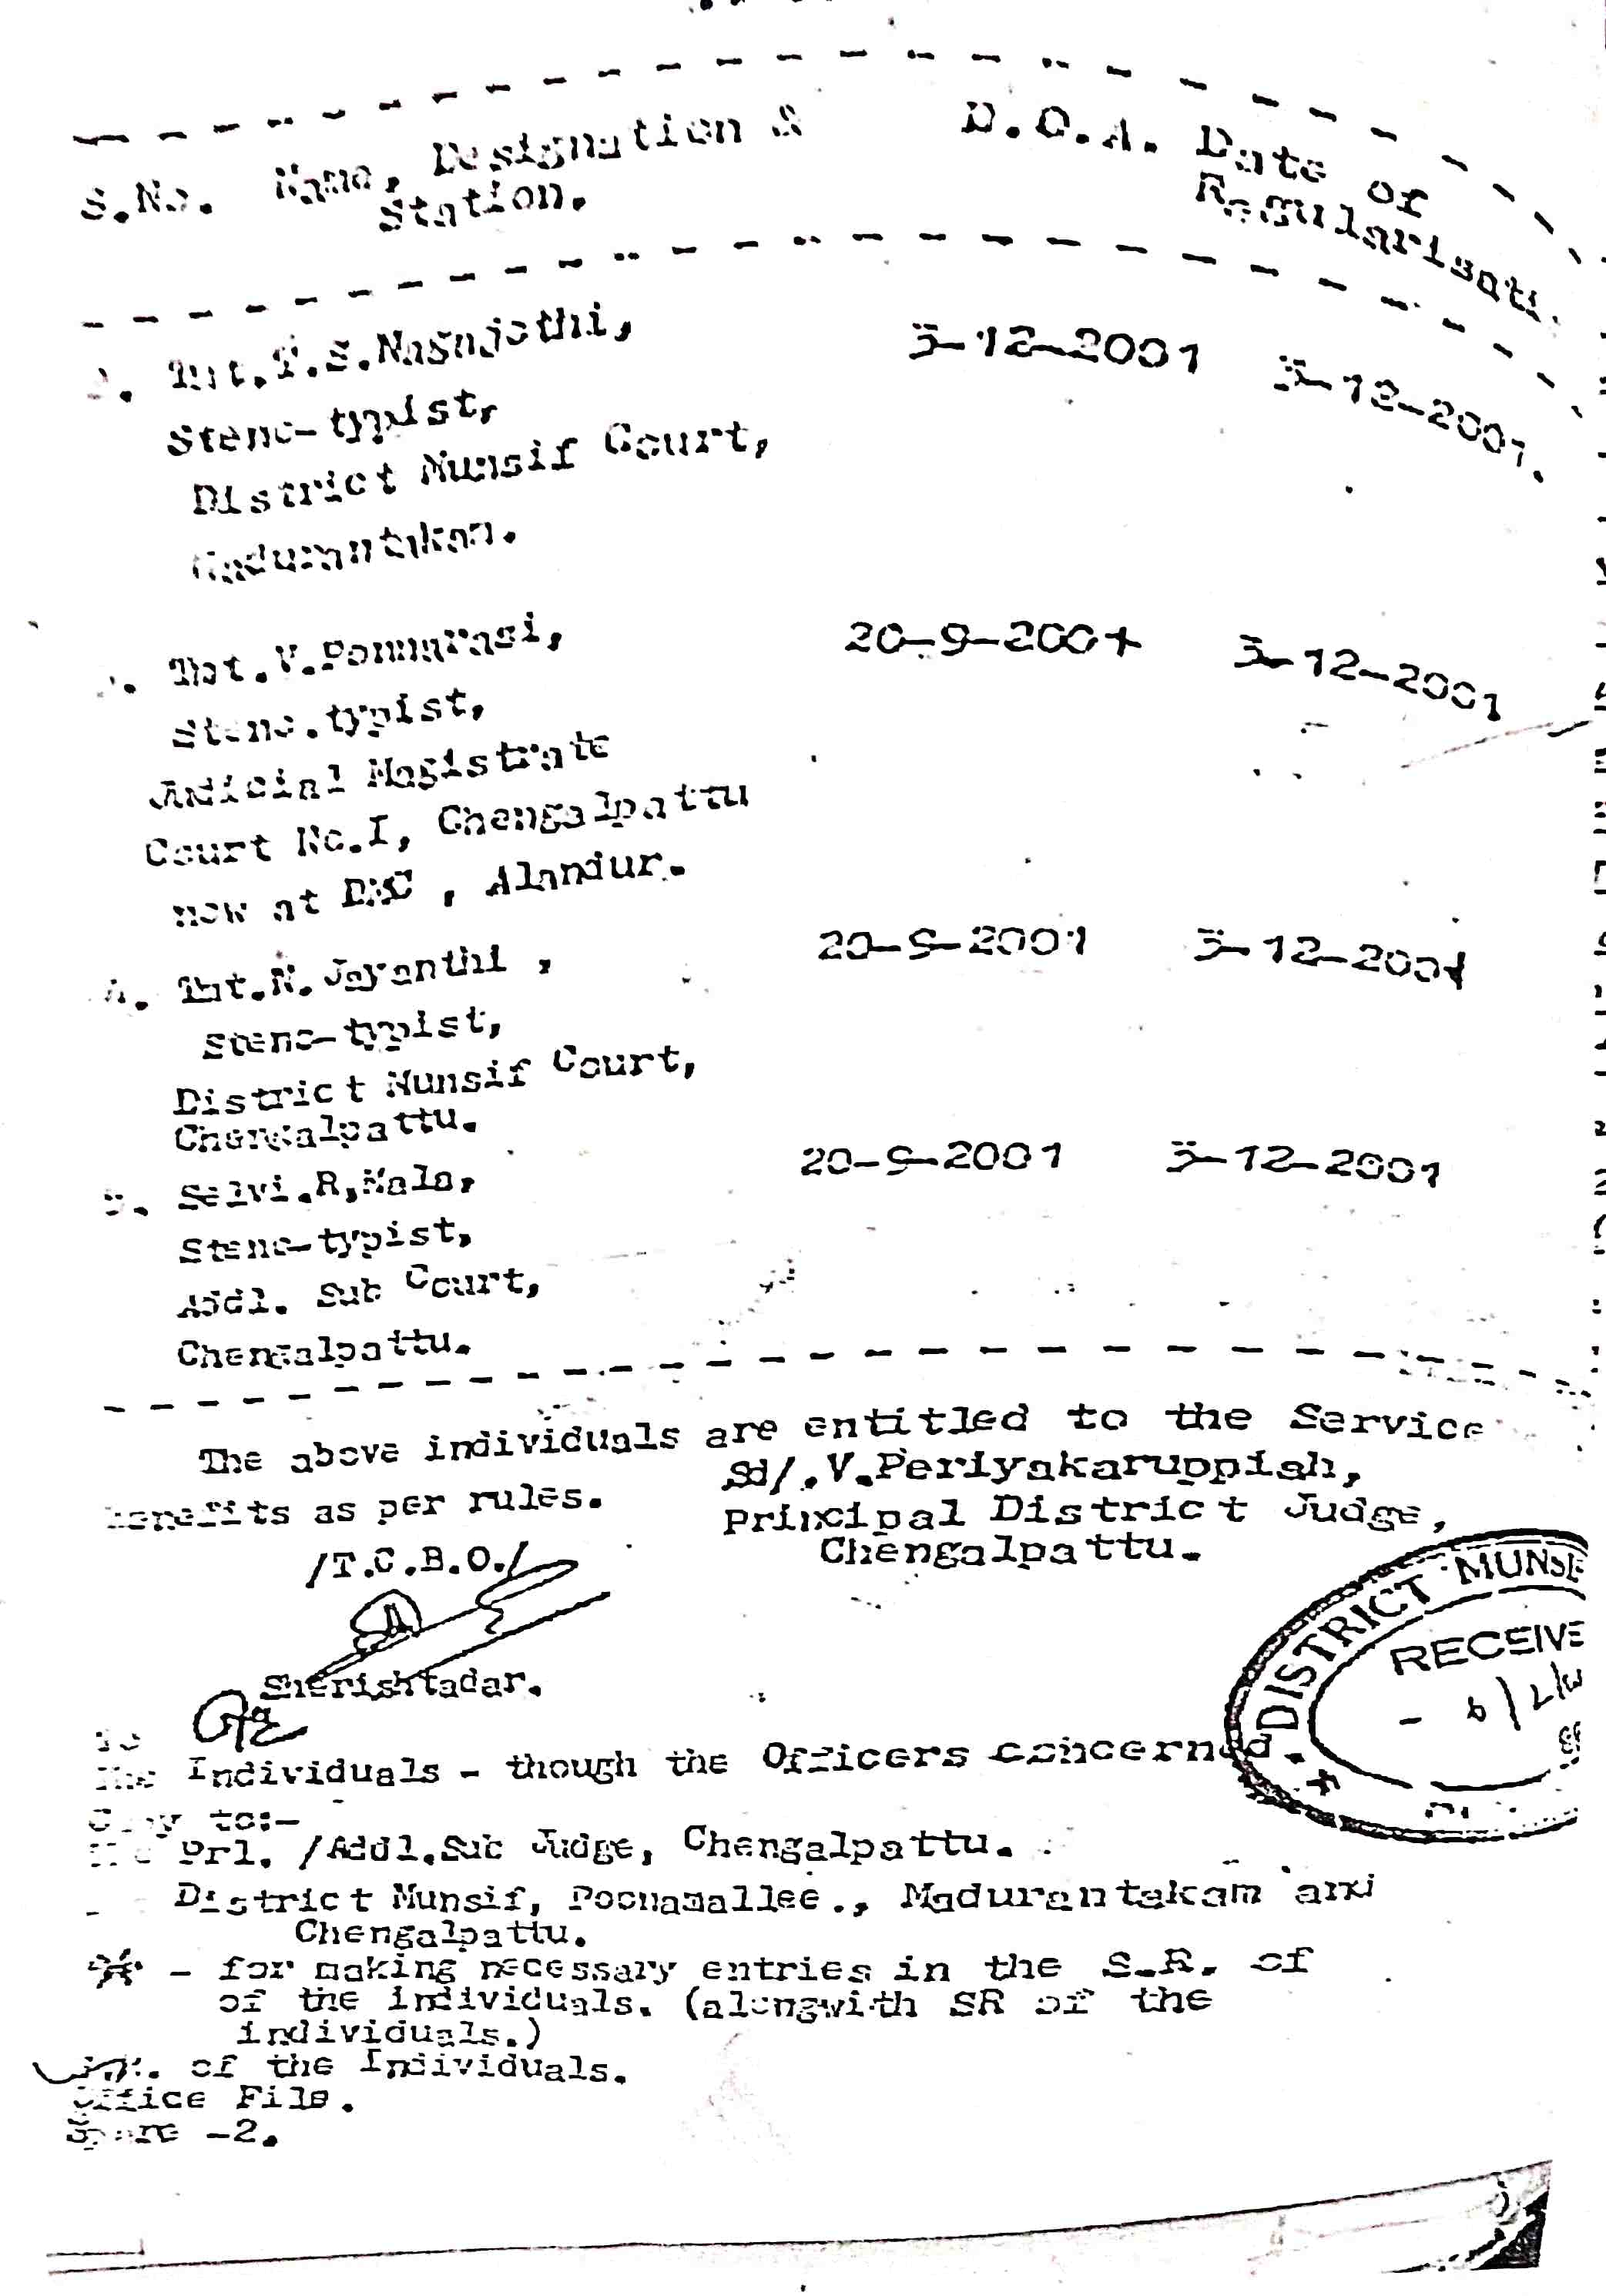 S.No. Name, Designation & D.O.A. Date of
Station. Regularisati.
Tmt. 3-12-2001 3-12-2001.
Steno-typist,
District Munsif Court,
Madurantakam.
Tmt.V.Ponnarasi, 20-9-2001 3-12-2001
Steno.typist,
Judicial Magistrate
Court No.I, Chengalpattu
now at DMC , Alandur.
4. Tmt.N.Jayanthi , 20-9-2001 3-12-2001
Steno-typist,
District Munsif Court,
Chengalpattu.
5. Selvi.R,Mala, 20-9-2001 3-12-2001
Steno-typist,
Addl. Sub Court,
Chengalpattu.
The above individuals are entitled to the Service
benefits as per rules.
Sd/.V.Periyakaruppiah,
Principal District Judge,
Chengalpattu.
/T.C.B.O./
Sherishtadar.
DISTRICT MUNSI
RECEIVE
To
The Individuals - though the Officers concerned.
Copy to:-
The Prl. /Addl.Sub Judge, Chengalpattu.
District Munsif, Poonamallee., Madurantakam and
Chengalpattu.
- for making necessary entries in the S.R. of
of the individuals. (alongwith SR of the
individuals.)
of the Individuals.
Office File.
Spare -2.